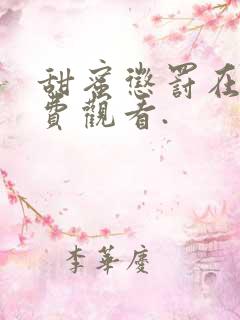 甜蜜懲罰在
費觀看.
李華慶